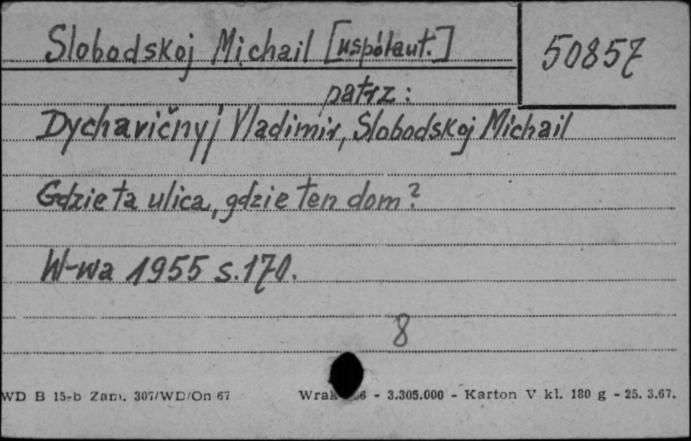 Slobodskoj Michail [współaut.]
50857
patrz:
Dychavičnyj Vladimir, Slobodskoj Michail
Gdzie ta ulica, gdzie ten dom?
W-wa 1955 s.170.
8
WD B 15-b Zam. 307/WD/On 67
- 3.305.000 - Karton V kl. 180 g - 25. 3.67.